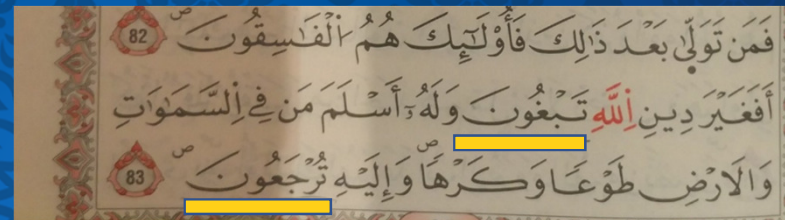 فَمَن تَوَلّٜىٰ بَعْدَ ذَٰلِكَ فَأُوْلَٰٓئِكَ هُمُ اُ۬لْفَٰسِقُونَ ص 82
أَفَغَيْرَ دِينِ اِ۬للَّهِ تَبْغُونَ وَلَهُۥٓ أَسْلَمَ مَن فِے اِ۬لسَّمَٰوَٰتِ
وَالَارْضِ طَوْعاٗ وَكَرْهاٗ ص وَإِلَيْهِ تُرْجَعُونَ ص 83